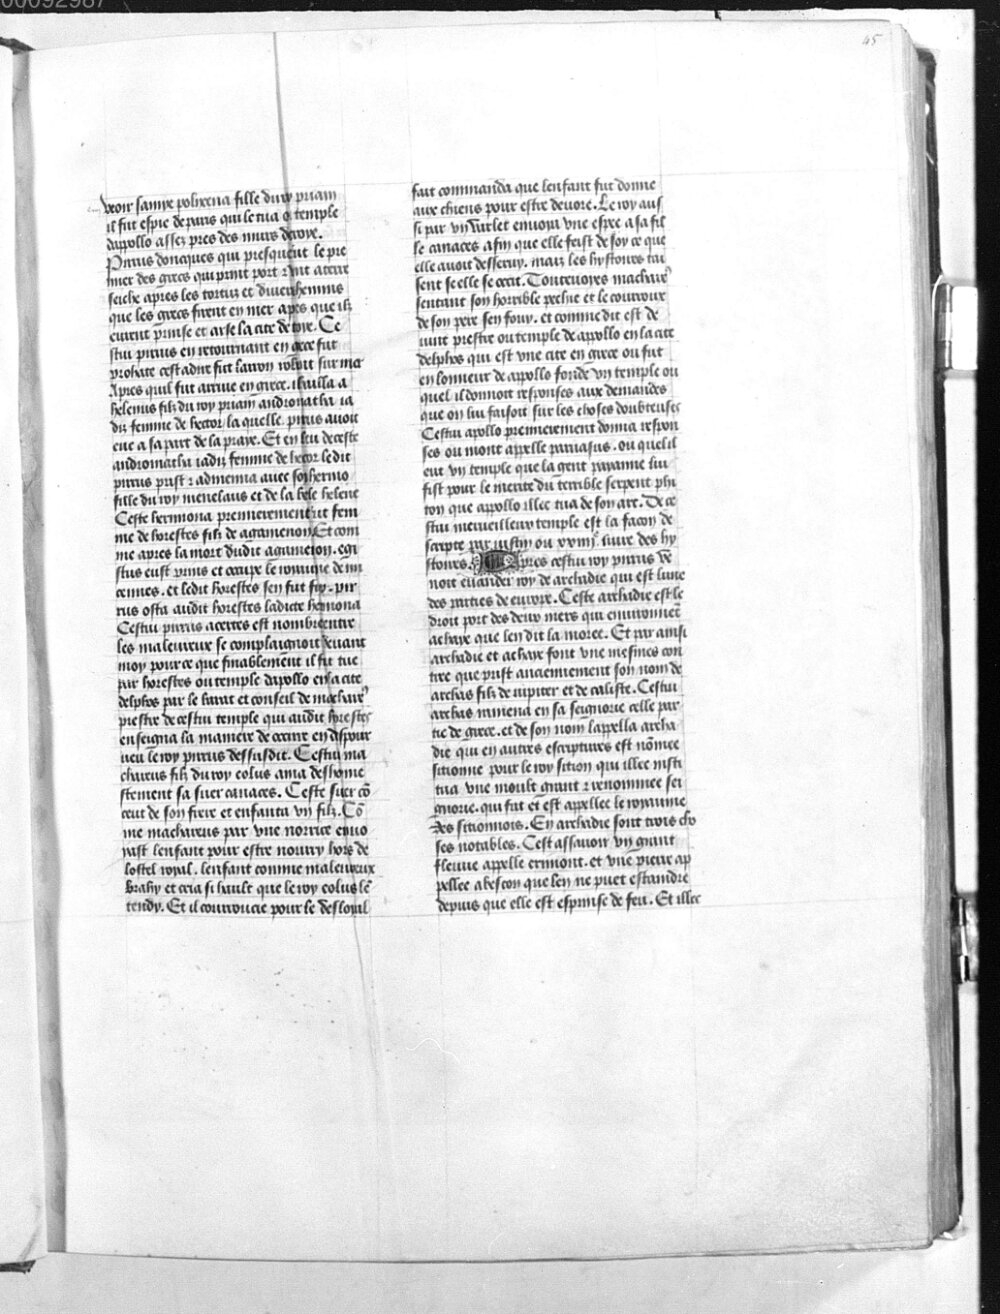 00092987
45
veoir samye polixena fille du roy priam
il fut espie de paris qui le tua ou temple
dapollo assez pres des murs de troye.
Pirrus doncques qui presquent le pre
mier des grecs qui print port
seiche apres les tortus et
que les grecs firent en mer apres que ilz
eurent prinse et arse la cite de troye. Ce
stui pirrus en retournant en grece fut
pirate cest a dire fut larron robant sur mer
Apres quil fut arrive en grece. il bailla a
helenus filz du roy priam andromatha ia
diz femme de hector la quelle pirrus avoit
eue a sa part de la praye. Et en lieu de ceste
andromatha iadiz femme de hector le dit
pirrus prist et admena avec soy hermio
fille du roy menelaus et de la bele helene
Ceste hermiona premierement fut fem
me de horestes filz de agamenon Et com
me apres la mort dudit agamenon. egi
stus eust prins et occupe le royaume de mi
cennes. et ledit horestes sen fut fuy. pir
rus osta audit horestes ladicte hermiona
Cestui pirrus acertes est nombre entre
les maleureux se complaignoit devant
moy pource que finablement il fut tue
par horestes ou temple dapollo en la cite
delphos par le barat et conseil de machare9
prestre de cestui temple qui audit horestes
enseigna la maniere de occire en despour
veu le roy pirrus dessusdit. Cestui ma
chareus filz du roy eolus ama deshonne
stement sa suer canaces. Ceste suer co
ceut de son frere et enfanta un filz. Co
me machareus par une norrice envo
yast lenfant pour estre nourry hors de
lostel royal. lenfant comme maleureux
brahy et cria si hault que le roy eolus le
tendy. Et il courroucie pour le desloyal
fait commanda que lenfant fut donne
aux chiens pour estre devore. Le roy aus
si par un varlet envoya une espee a sa fil
le canaces afin que elle feist de soy ce que
elle avoit desservy. mais les hystoires tai
sent se elle se occit. Toutevoyes machare9
sentant son horrible pechie et le courroux
de son pere sen fouy. et comme dit est de
vint prestre ou temple de apollo en la cite
delphos qui est une cite en grece ou fut
en lonneur de appollo fonde un temple ou
quel il donnoit responses aux demandes
que on lui faisoit sur les choses doubteuses
Cestui apollo premierement donna respon
ses ou mont appelle parnasus. ou quel il
eut un temple que la gent payanne lui
fist pour le merite du terrible serpent phi
ton que appollo illec tua de son arc. De ce
stui merveilleux temple est la facon de
scripte par iustin ou xxiiij.e livre des hy
stoires. Apres cestui roy pirrus ve
noit evander roy de archadie qui est lune
des parties de europe. Ceste archadie est le
droit port des deux mers qui environnent
achaye que len dit la moree. Et par ainsi
archadie et achaye sont une mesmes con
tree que prist anciennement son nom de
archas filz de iupiter et de caliste. Cestui
archas ramena en sa seignorie celle par
tie de grece. et de son nom lappella archa
die qui en autres escriptures est nomee
sitionne pour le roy sition qui illec insti
tua une moult grant et renommee sei
gnorie. qui fut et est appellee le royaume
des sitionnois. En archadie sont trois cho
ses notables. Cest assavoir un grant
fleuve appelle erimont. et une pierre ap
pellee abeston que len ne puet estaindre
depuis que elle est esprinse de feu. Et illec